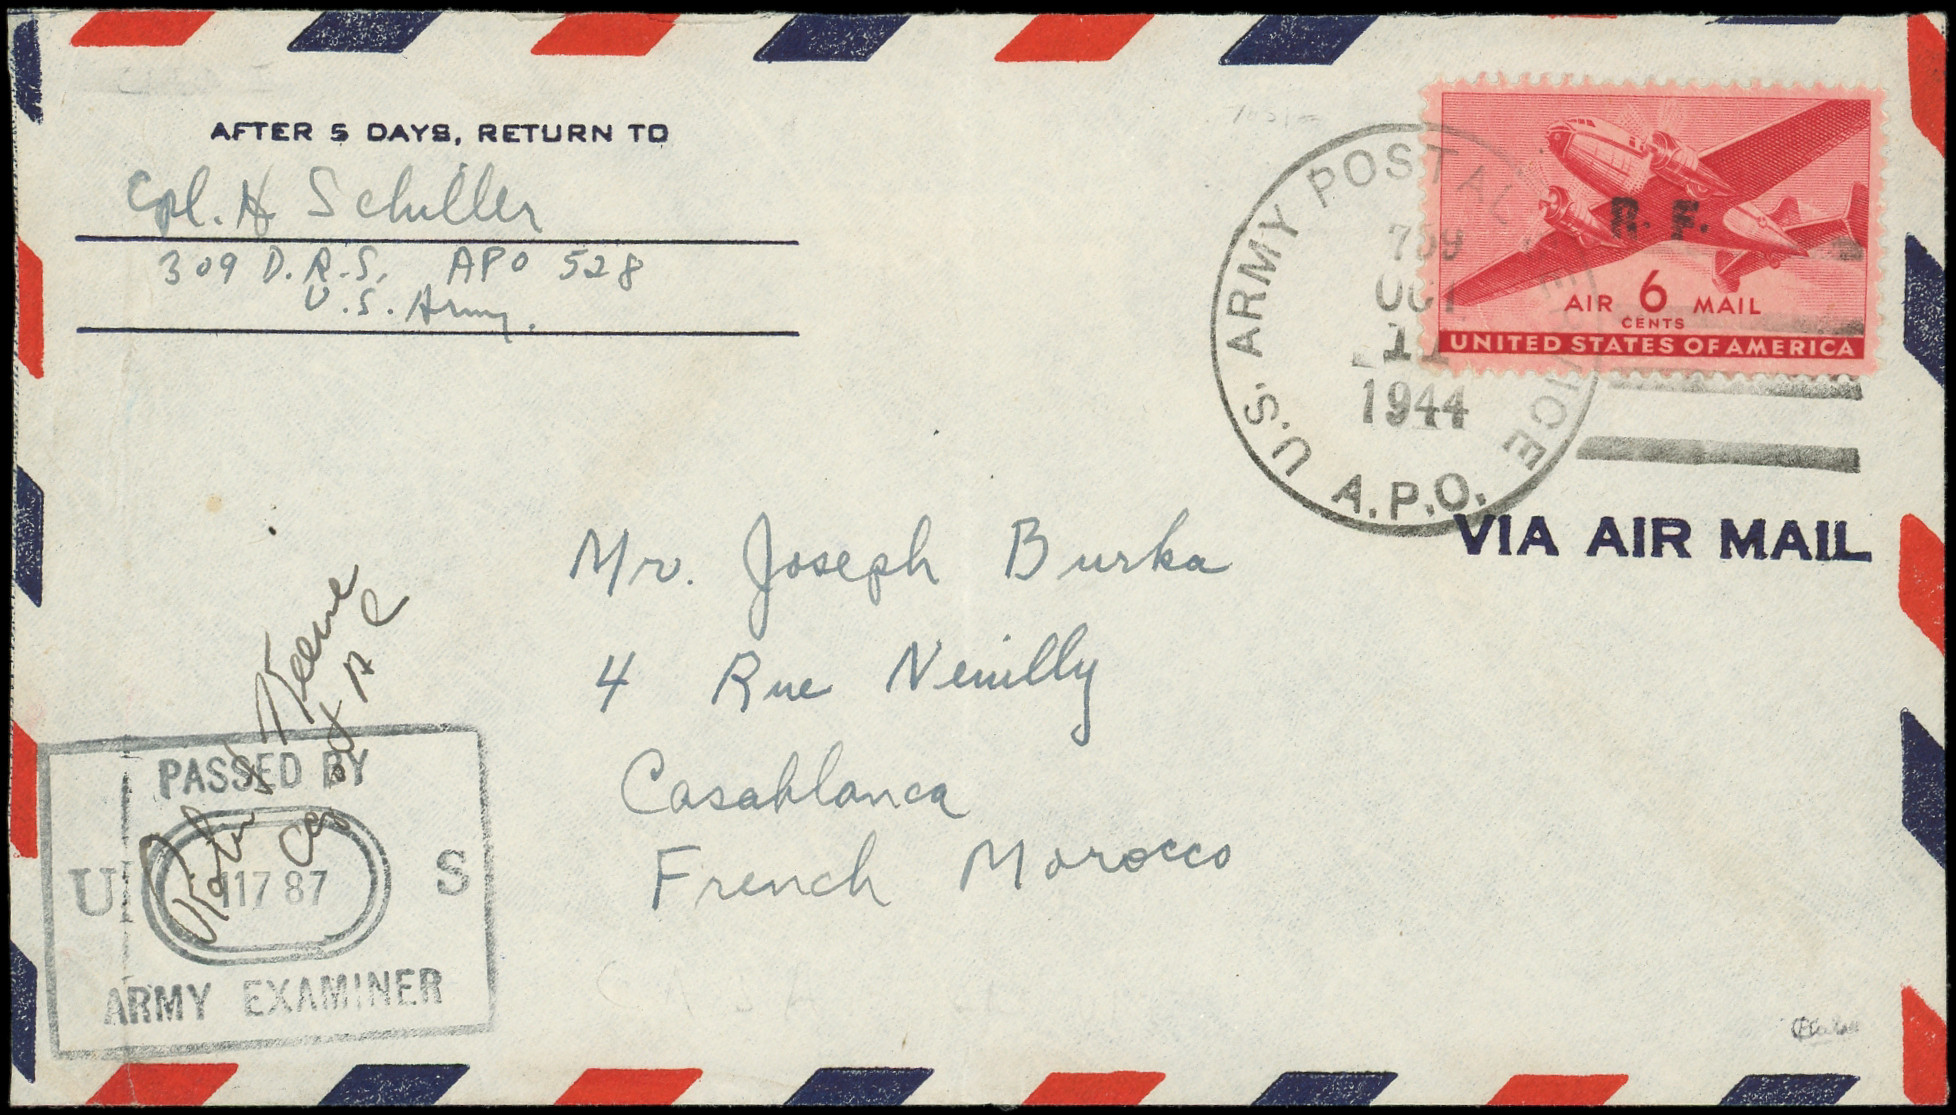 AFTER 5 DAYS, RETURN TO
Cpl. H Schiller
309 D.R.S. APO 528
U.S. Army.
U.S. ARMY POSTAL SERVICE
A.P.O.
759
OCT
11
1944
R. F.
AIR 6 MAIL
CENTS
UNITED STATES OF AMERICA
VIA AIR MAIL
Mr. Joseph Burka
4 Rue Neuilly
Casablanca
French Morocco
Keene
PASSED BY
U 11787 S
ARMY EXAMINER